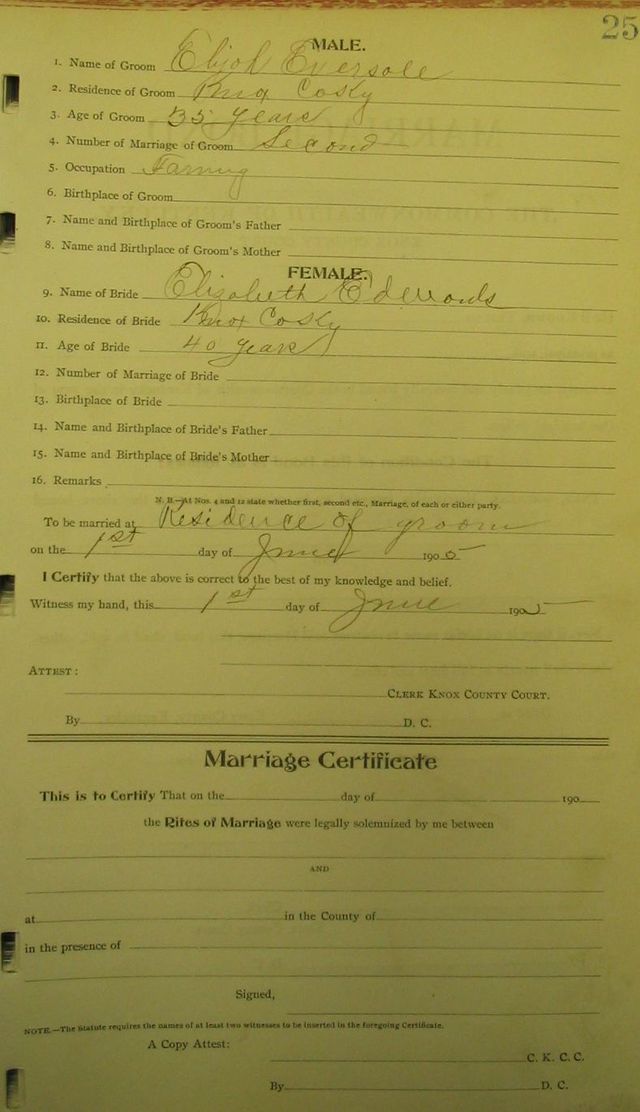 25
MALE.
1. Name of Groom Elijah Eversole
2. Residence of Groom Knox Co Ky
3. Age of Groom 35 years
4. Number of Marriage of Groom Second
5. Occupation Farming
6. Birthplace of Groom
7. Name and Birthplace of Groom's Father
8. Name and Birthplace of Groom's Mother
FEMALE.
9. Name of Bride Elizabeth Edwards
10. Residence of Bride Knox Co Ky
11. Age of Bride 40 years
12. Number of Marriage of Bride
13. Birthplace of Bride
14. Name and Birthplace of Bride's Father
15. Name and Birthplace of Bride's Mother
16. Remarks
N. B.—At Nos. 4 and 12 state whether first, second etc., Marriage, of each or either party.
To be married at Residence of groom
on the 1st day of June 1905
I Certify that the above is correct to the best of my knowledge and belief.
Witness my hand, this 1st day of June 1905
ATTEST:
CLERK KNOX COUNTY COURT.
By D. C.
Marriage Certificate
This is to Certify That on the day of 190
the Rites of Marriage were legally solemnized by me between
AND
at in the County of
in the presence of
Signed,
NOTE.—The Statute requires the names of at least two witnesses to be inserted in the foregoing Certificate.
A Copy Attest:
C. K. C. C.
By D. C.